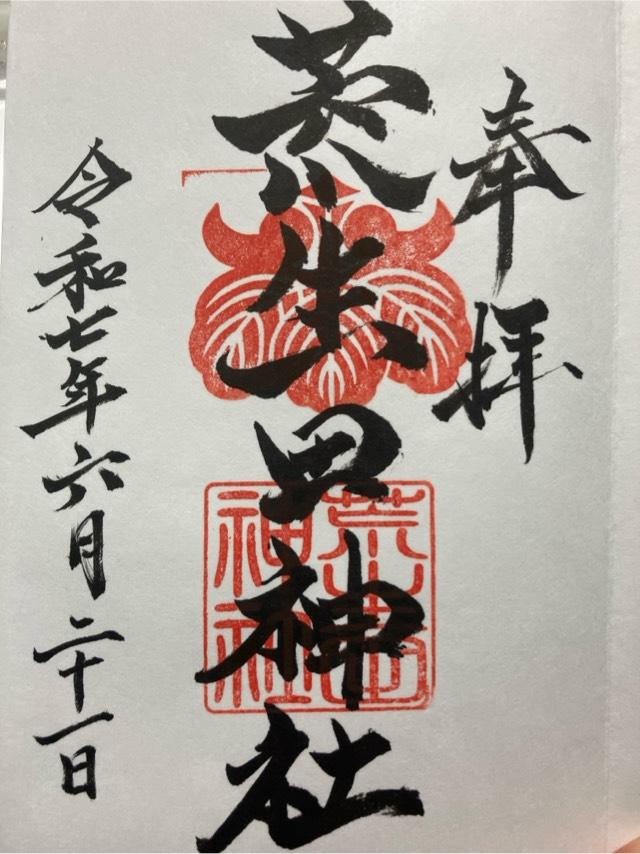 奉拝
荒生田神社
荒生田神社
令和七年六月二十一日